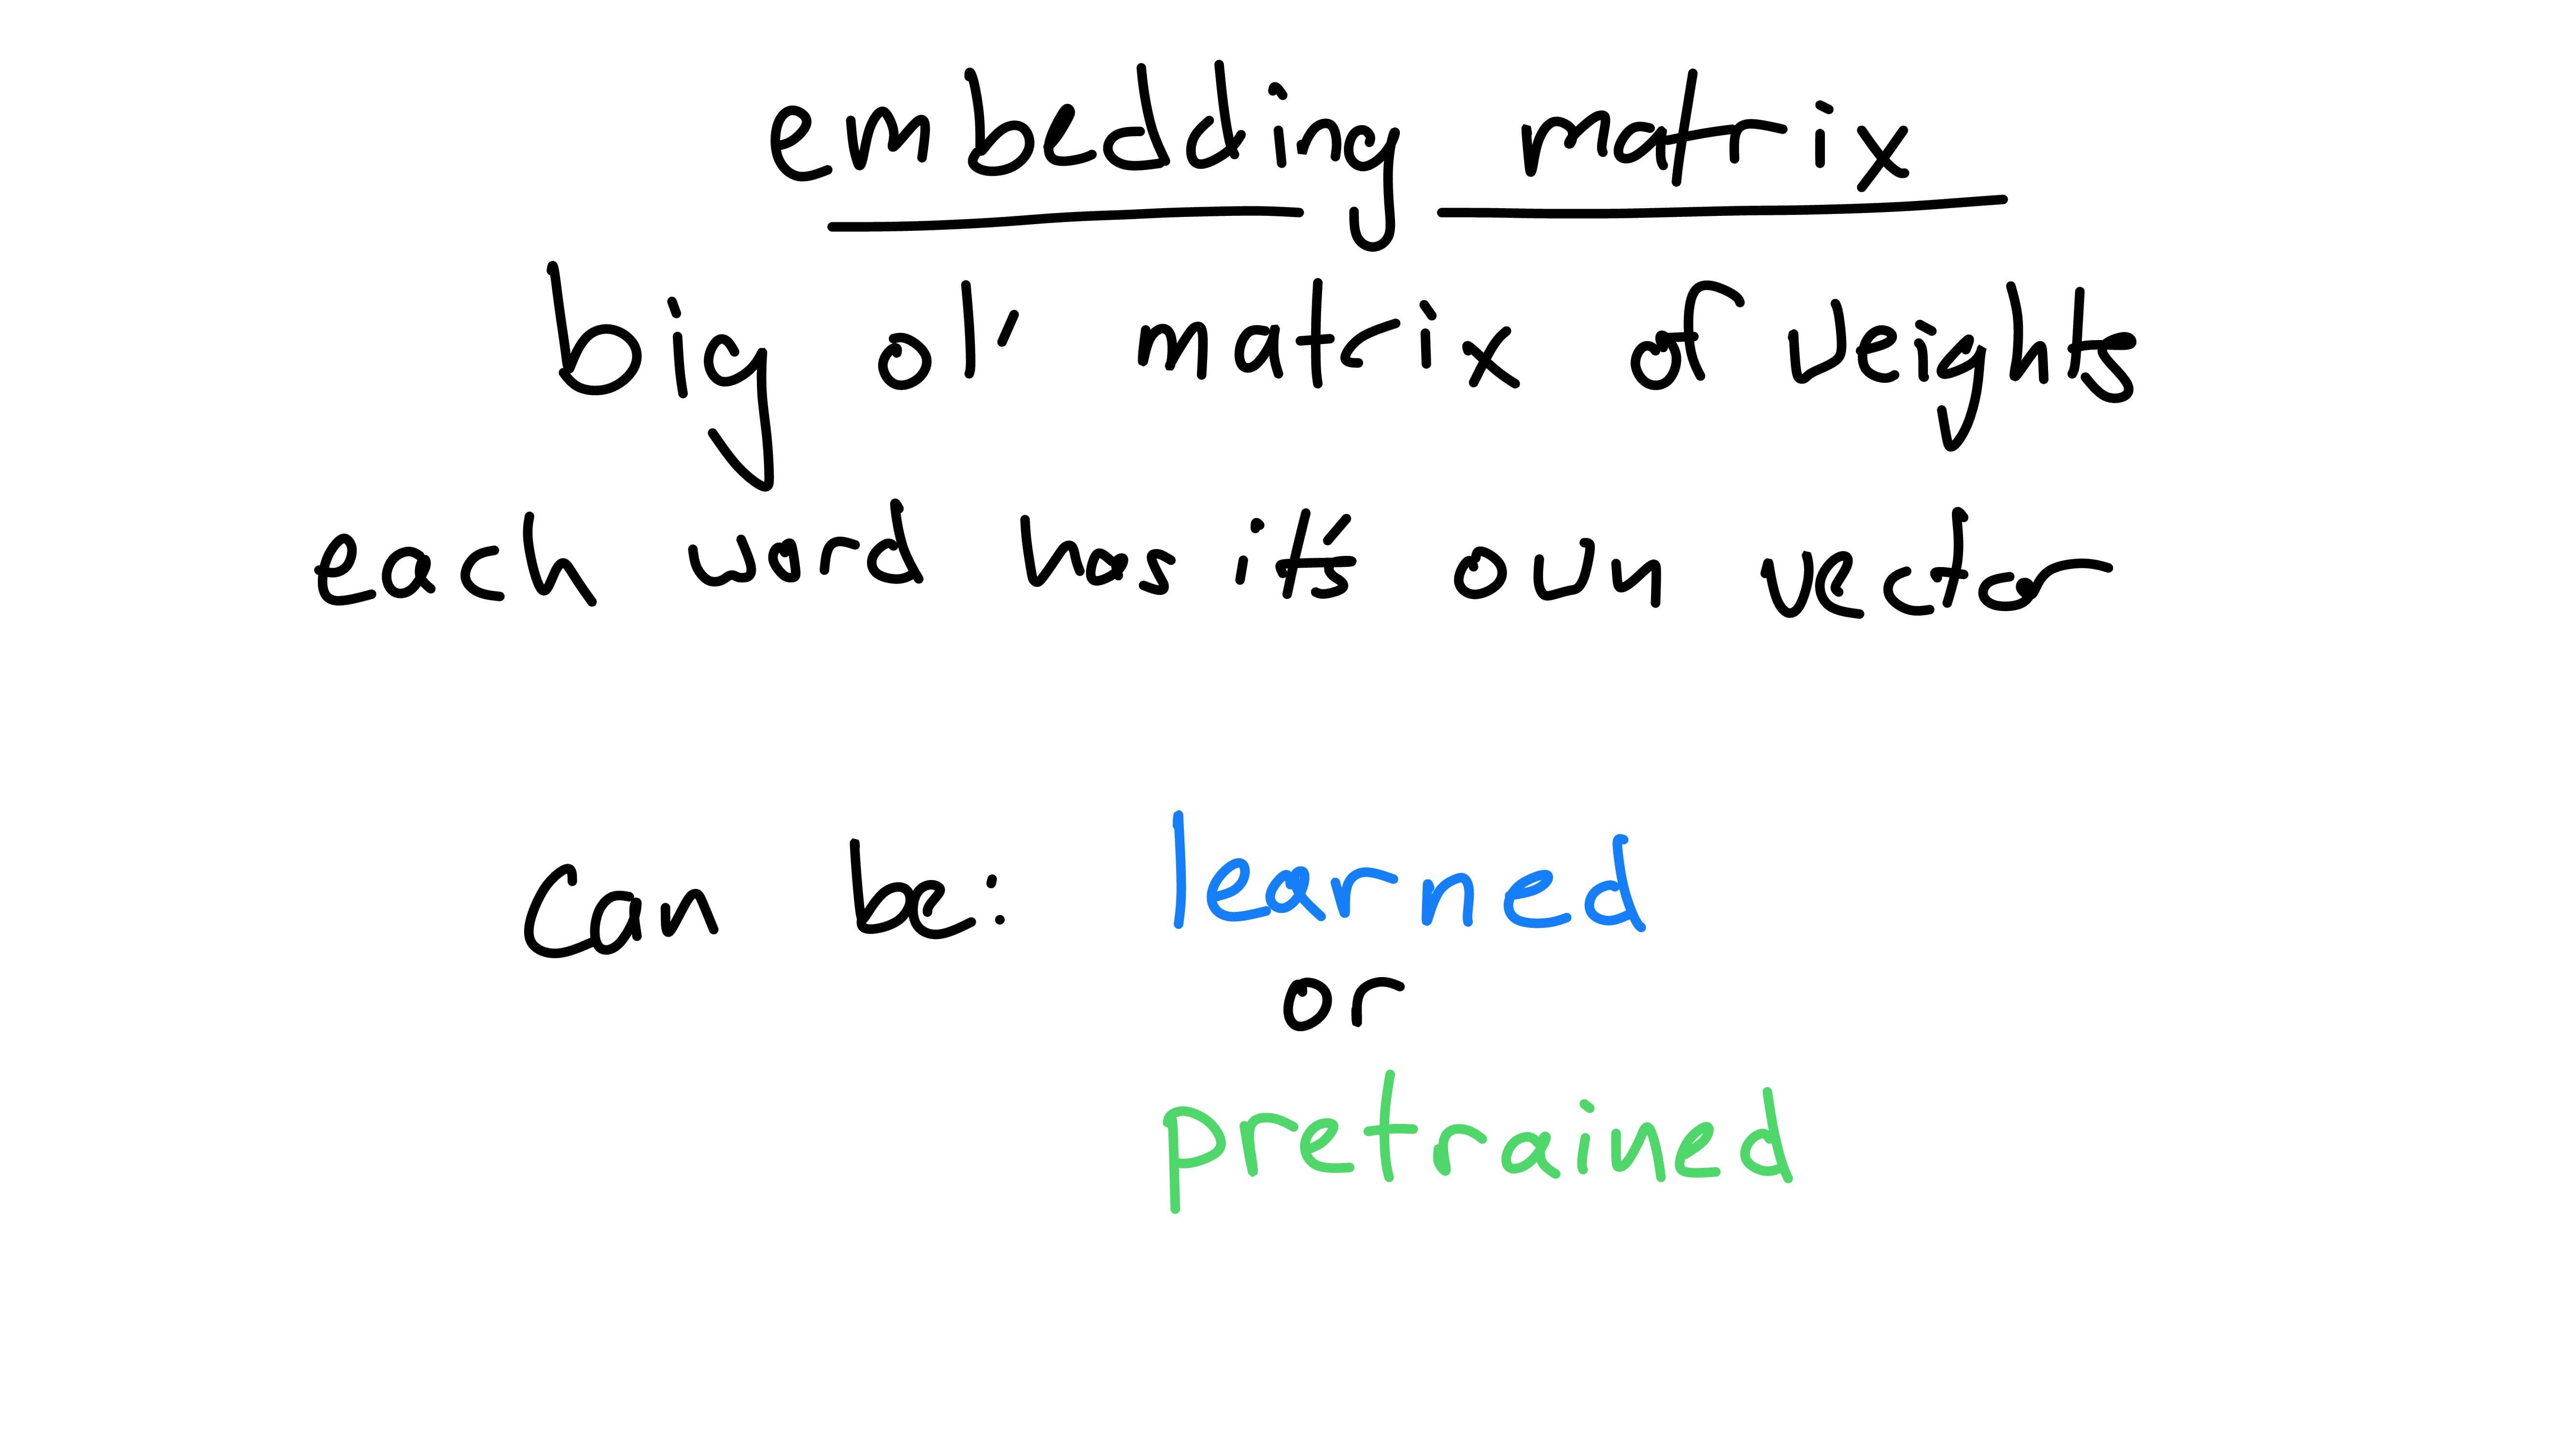 embedding matrix
big ol' matrix of weights
each word has it's own vector
Can be: learned
or
pretrained